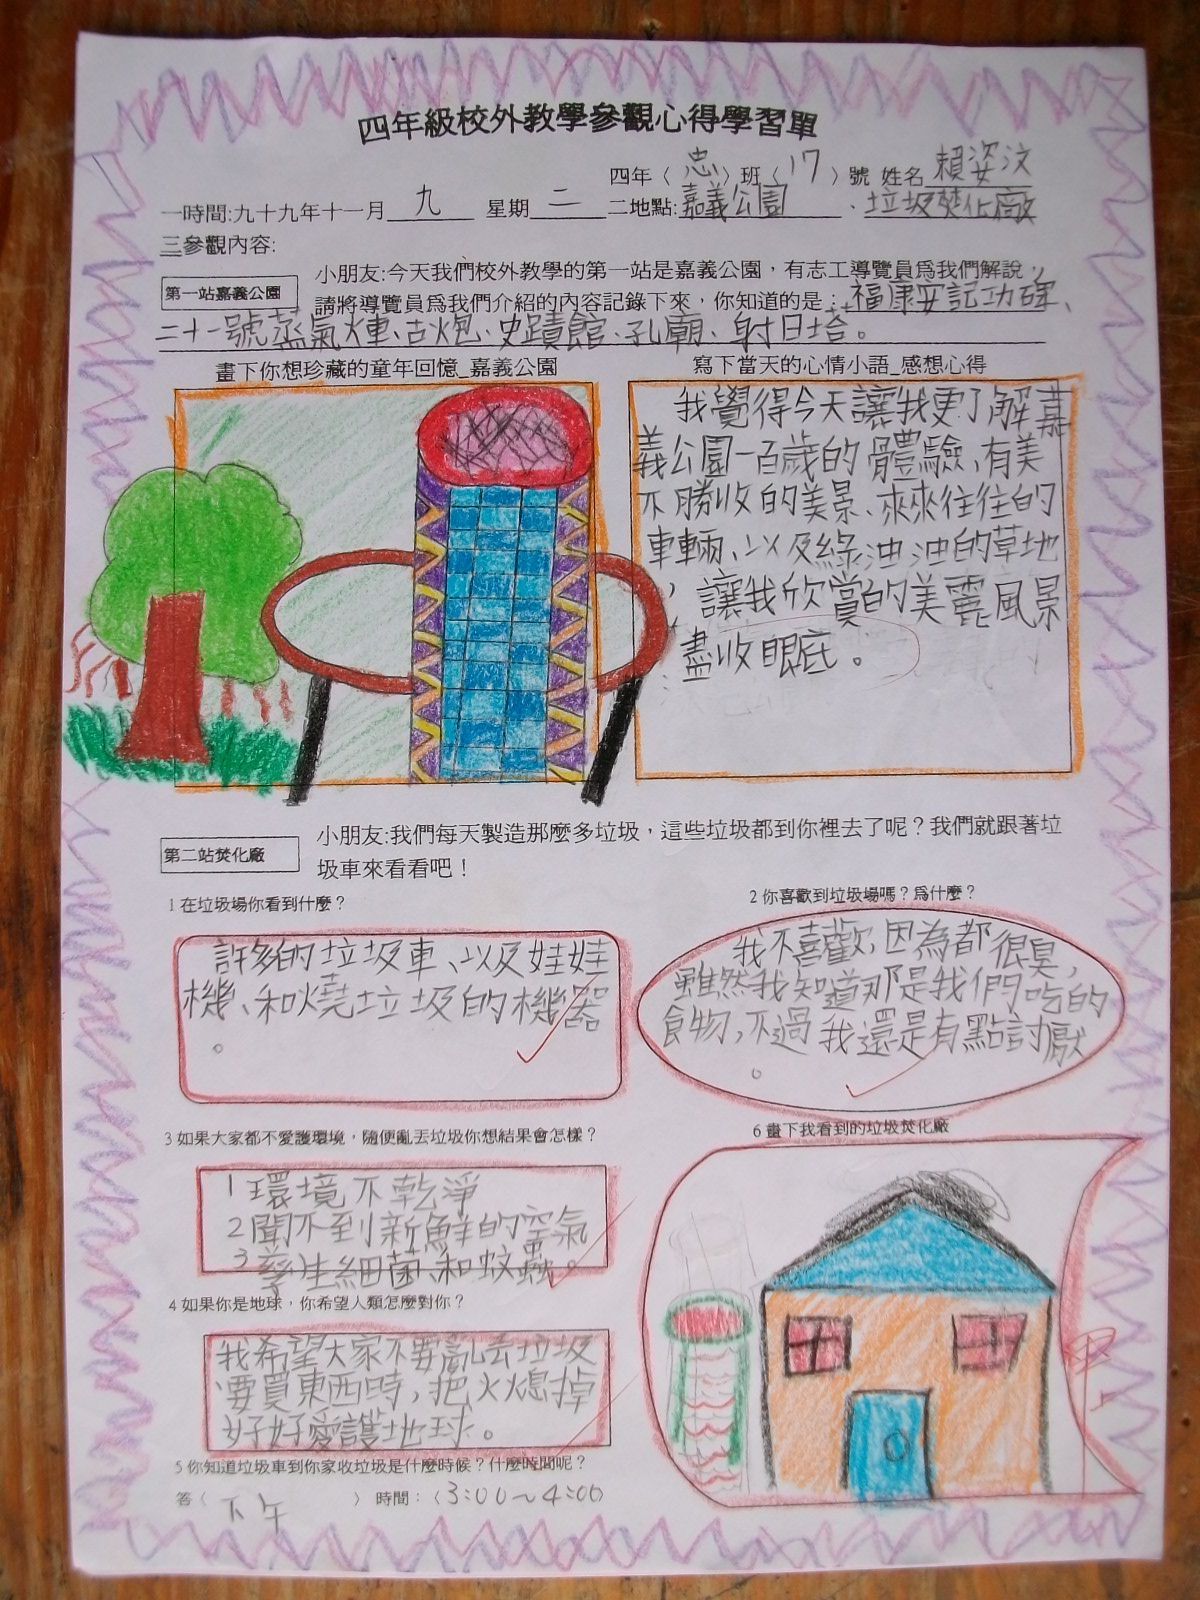 四年級校外教學參觀心得學習單
四年（忠）班（17）號 姓名賴姿汶
一時間:九十九年十一月九 星期二 二地點:嘉義公園、垃圾焚化廠
三參觀內容:
第一站嘉義公園
小朋友:今天我們校外教學的第一站是嘉義公園，有志工導覽員為我們解說，
請將導覽員為我們介紹的內容記錄下來，你知道的是：福康安記功碑、
二十一號蒸氣火車、古炮、史蹟館、孔廟、射日塔。
畫下你想珍藏的童年回憶_嘉義公園
寫下當天的心情小語_感想心得
我覺得今天讓我更了解嘉
義公園一百歲的體驗，有美
不勝收的美景、來來往往的
車輛、以及綠油油的草地
，讓我欣賞的美麗風景
盡收眼底。
第二站焚化廠
小朋友:我們每天製造那麼多垃圾，這些垃圾都到你裡去了呢？我們就跟著垃
圾車來看看吧！
1 在垃圾場你看到什麼？
許多的垃圾車、以及娃娃
機、和燒垃圾的機器
。
2 你喜歡到垃圾場嗎？為什麼？
我不喜歡，因為都很臭，
雖然我知道那是我們吃的
食物，不過我還是有點討厭
。
3 如果大家都不愛護環境，隨便亂丟垃圾你想結果會怎樣？
1 環境不乾淨
2 聞不到新鮮的空氣
3 孳生細菌、和蚊蟲。
4 如果你是地球，你希望人類怎麼對你？
我希望大家不要亂丟垃圾
要買東西時，把火熄掉
好好愛護地球。
5 你知道垃圾車到你家收垃圾是什麼時候？什麼時間呢？
答（下午） 時間：（3:00～4:00
6 畫下我看到的垃圾焚化廠
甲上